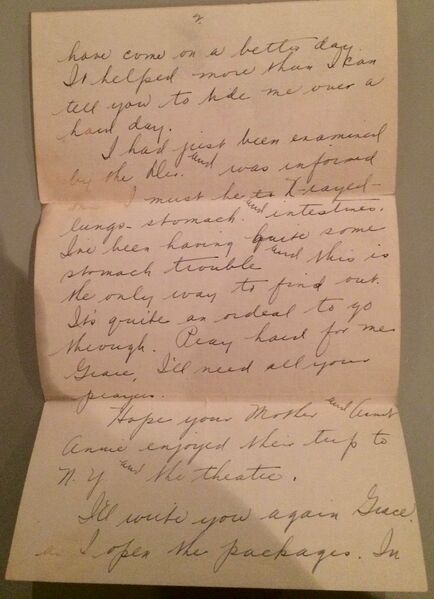 2.
have come on a better day.
It helped more than I can
tell you to tide me over a
hard day.
I had just been examined
by the Drs. and was informed
I must be X-rayed -
lungs - stomach and intestines.
I've been having quite some
stomach trouble and this is
the only way to find out.
It's quite an ordeal to go
through. Pray hard for me
Grace, I'll need all your
prayers.
Hope your Mother and Aunt
Annie enjoyed their trip to
N.Y. and the theatre.
I'll write you again Grace.
as I open the packages. In